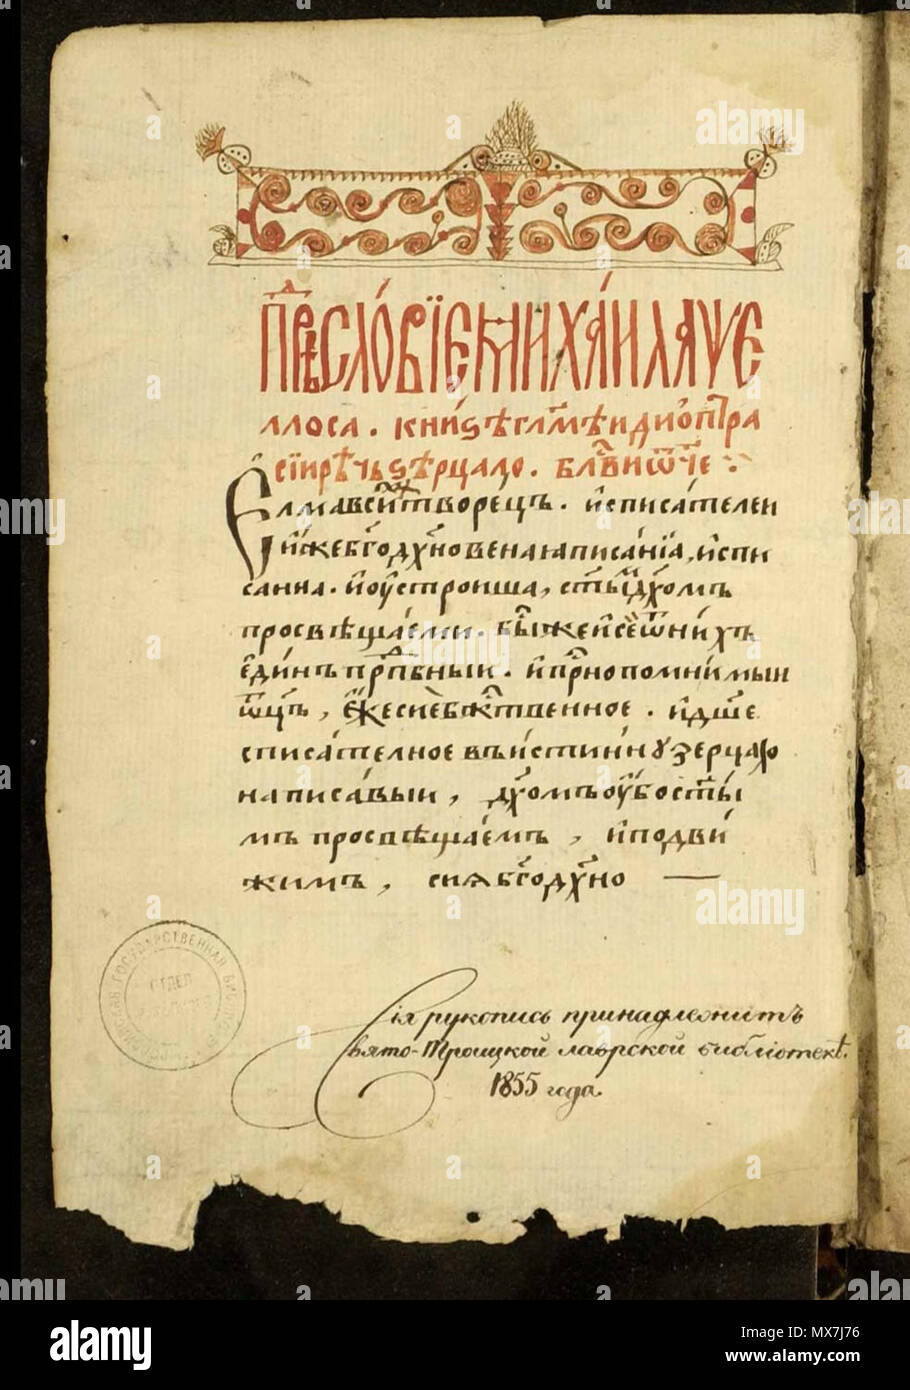 Прⷣесло́вїе михаи́ла ѱе
ллоса. кни́ѕѣ глⷡ҇мѣи дио́птра
сїирѣчь ѕѣрцало. блгⷭ҇ви ѿч҃е
творецъ. и҆списа́телеи
и҆же бг҃одх҃новеная писанїа, и҆спи
санна. и҆ оу҆строиша, ст҃ыⷨ дх҃омъ
просвѣща́еми. бы́ же и҆ се ѿ ни́хъ
є҆ди́нъ прⷣпбныи. и҆ прⷭ҇нопомни́мыи
ѿц҃ъ, є҆́же сие бж҃твенное. и҆ дш҃е
списа́телное въи́стинну зерцало
написа́выи, дх҃омъ оу҆бо ст҃ы́
мъ просвѣща́емъ, и҆ подви́
жимъ, сиѧ бг҃одх҃но
Сія рукопись принадлежитъ
Свято-Троицкой лаврской библіотекѣ.
1855 года.
ГОСУДАРСТВЕННАЯ
ОТДЕЛ
alamy
Image ID: MX7J76
www.alamy.com